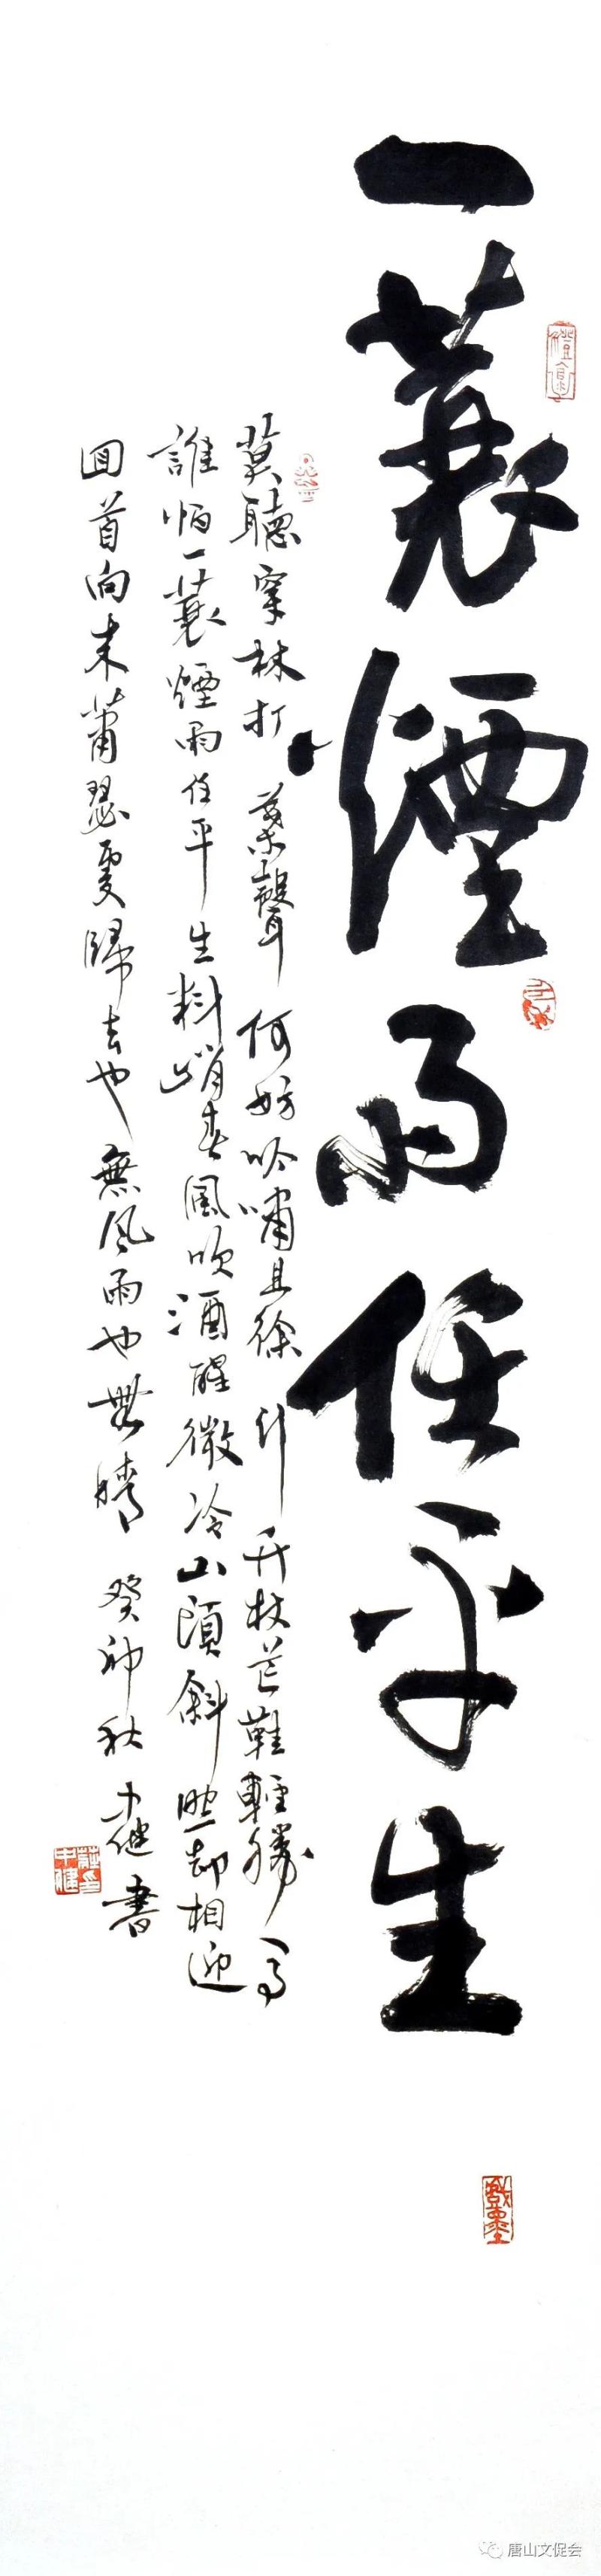 一蓑煙雨任平生
莫聽穿林打葉聲何妨吟嘯且徐行竹杖芒鞋輕勝馬
誰怕一蓑煙雨任平生料峭春風吹酒醒微冷山頭斜照却相迎
回首向来蕭瑟處歸去也無風雨也無晴癸卯秋中健書
唐山文促会